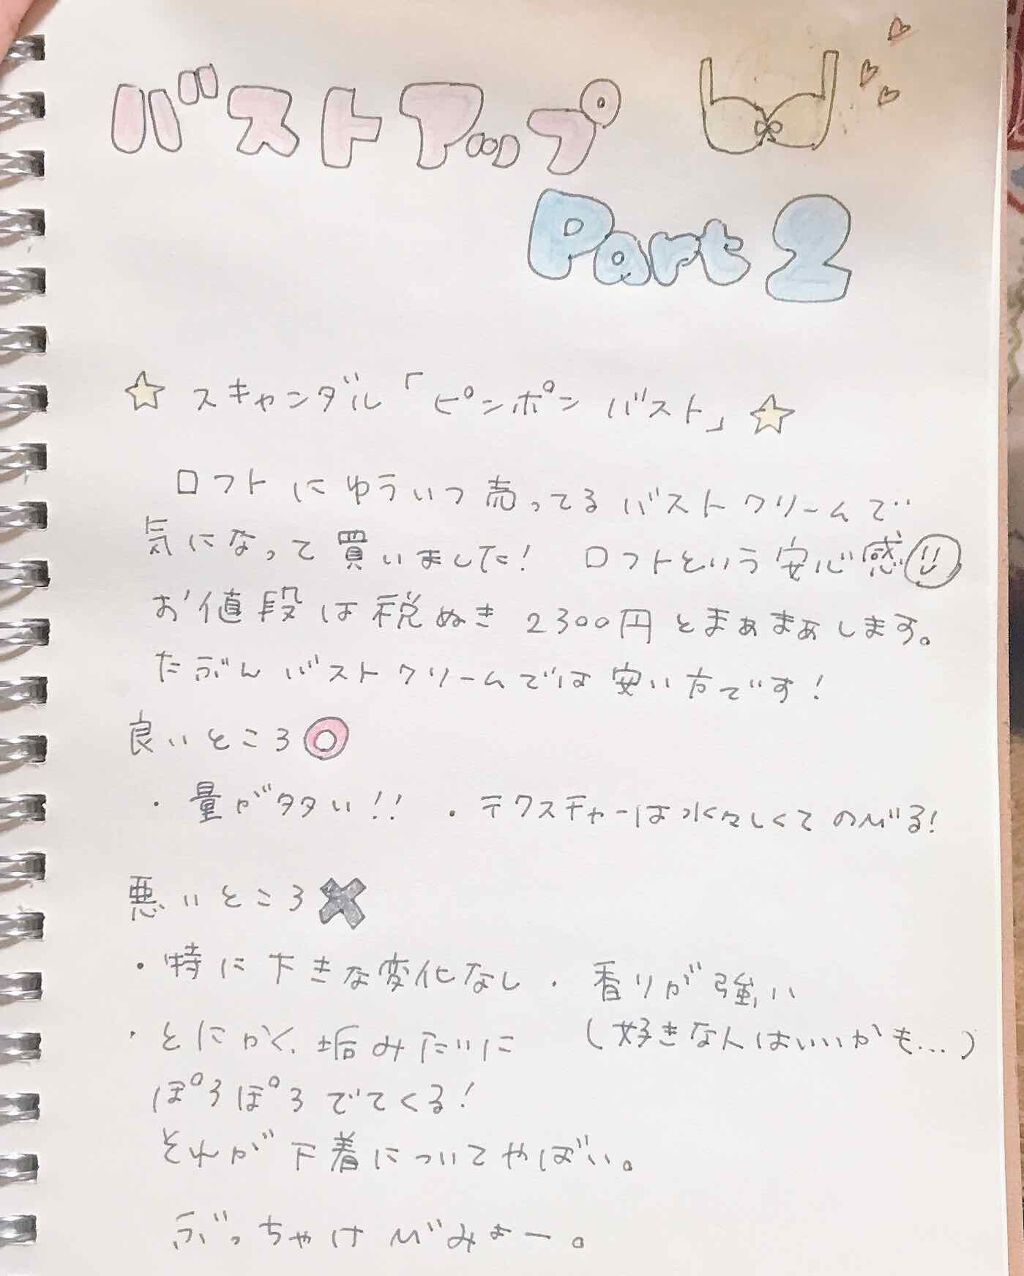 バストアップ
Part 2
☆ スキャンダル「ピンポン バスト」☆
ロフト に ゆういつ 売ってる バストクリームで
気になって 買いました! ロフトという 安心感
お値段は 税ぬき 2300円 とまぁまぁします。
たぶん バストクリームでは 安い方です!
良いところ◎
・量が多い!! ・テクスチャーは水々しくて のびる!
悪いところ✖
・特に 大きな変化なし ・香りが強い
(好きな人はいいかも…)
・とにかく、垢みたいに
ぽろぽろ でてくる!
それが 下着について やばい。
ぶっちゃけ びみょー。